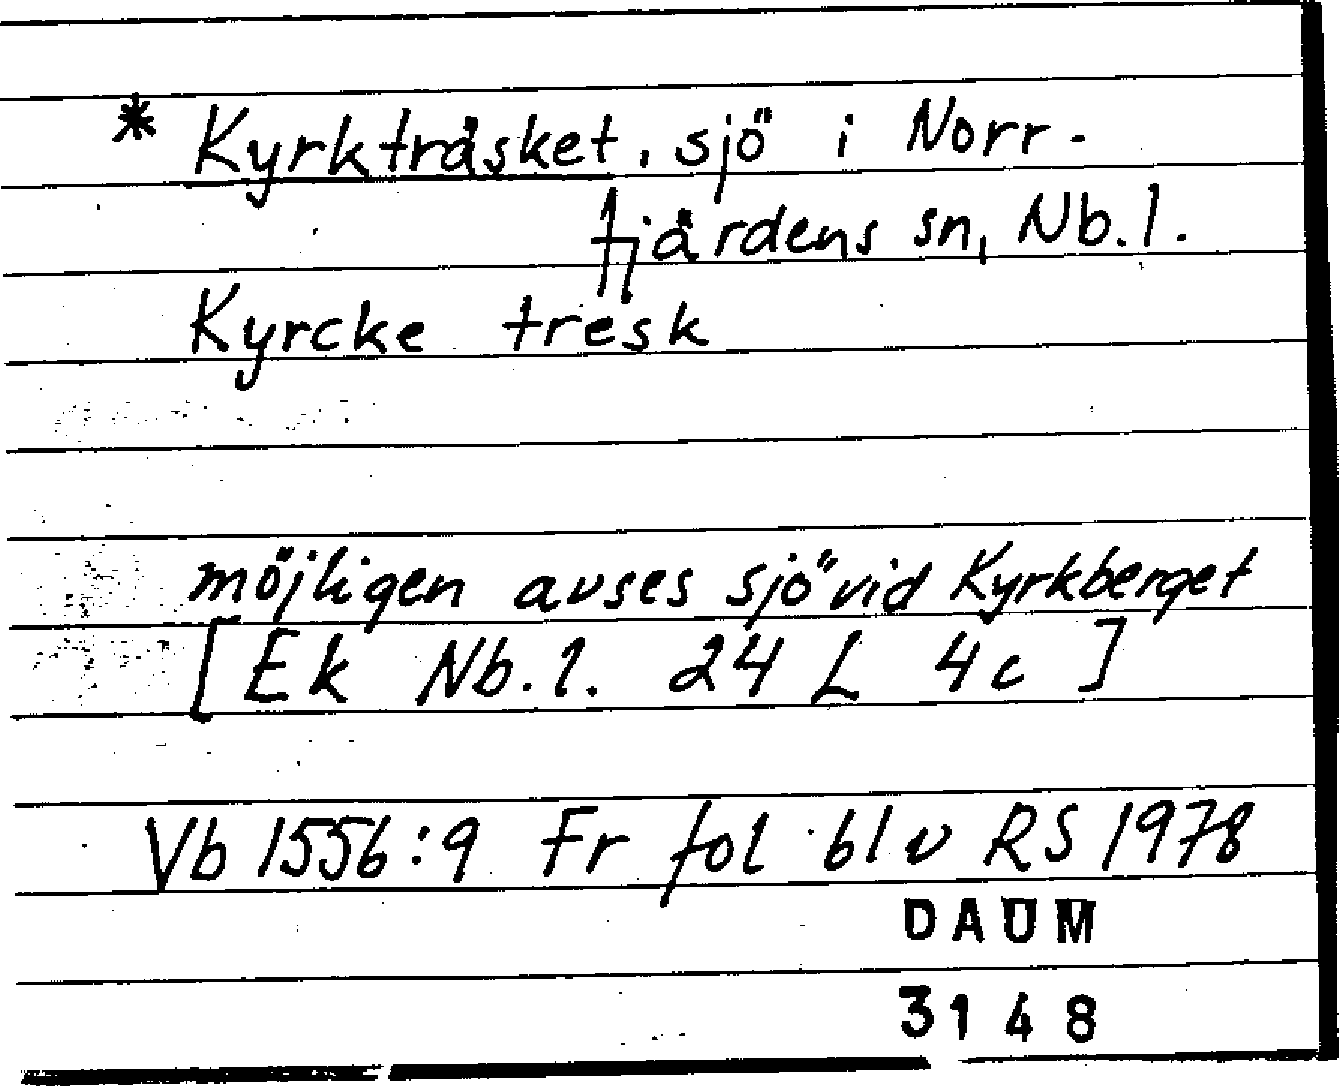 * Kyrkträsket, sjö i Norr-
fjärdens sn, Nb.l.
Kyrcke tresk
möjligen avses sjö vid Kyrkberget
[Ek Nb.l. 24 L 4c]
Vb 1556:9 Fr fol 61 v RS 1978
DAUM
3148